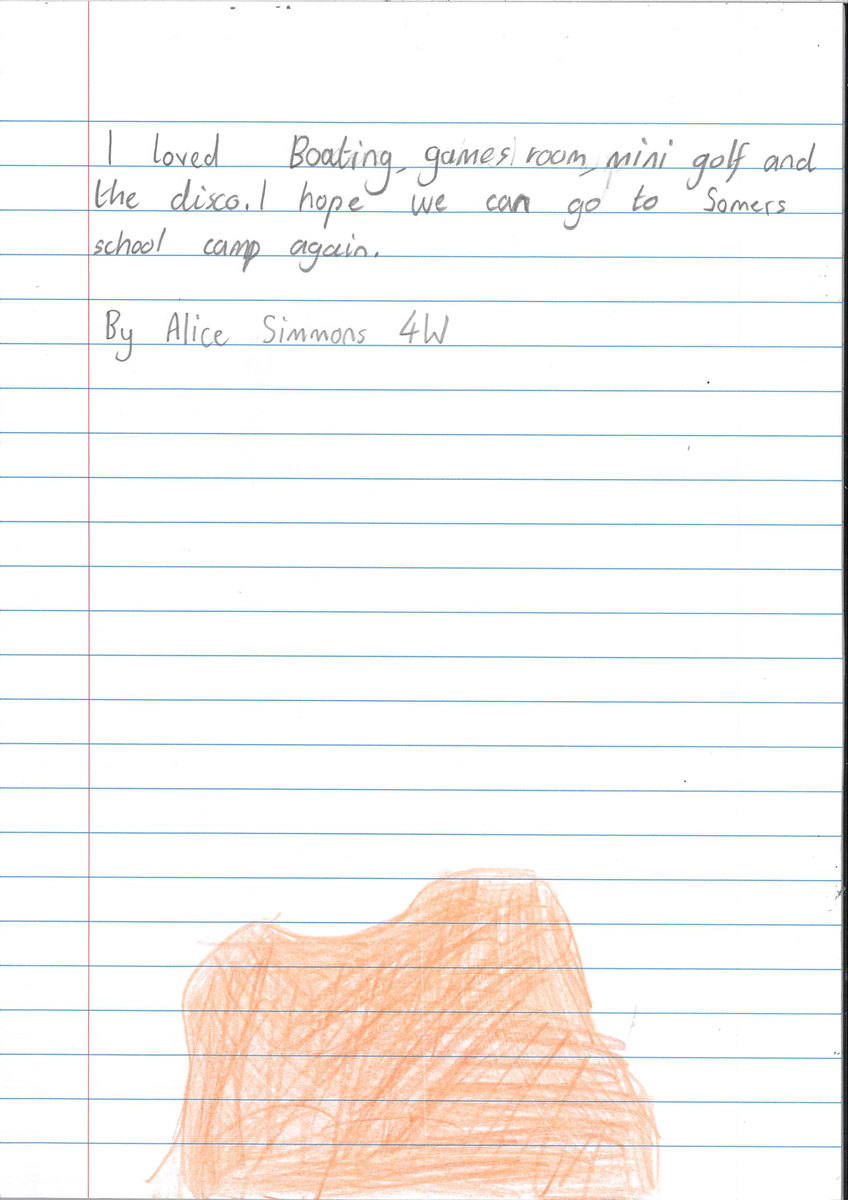 I loved Boating, games room, mini golf and
the disco. I hope we can go to Somers
school camp again.
By Alice Simmons 4W